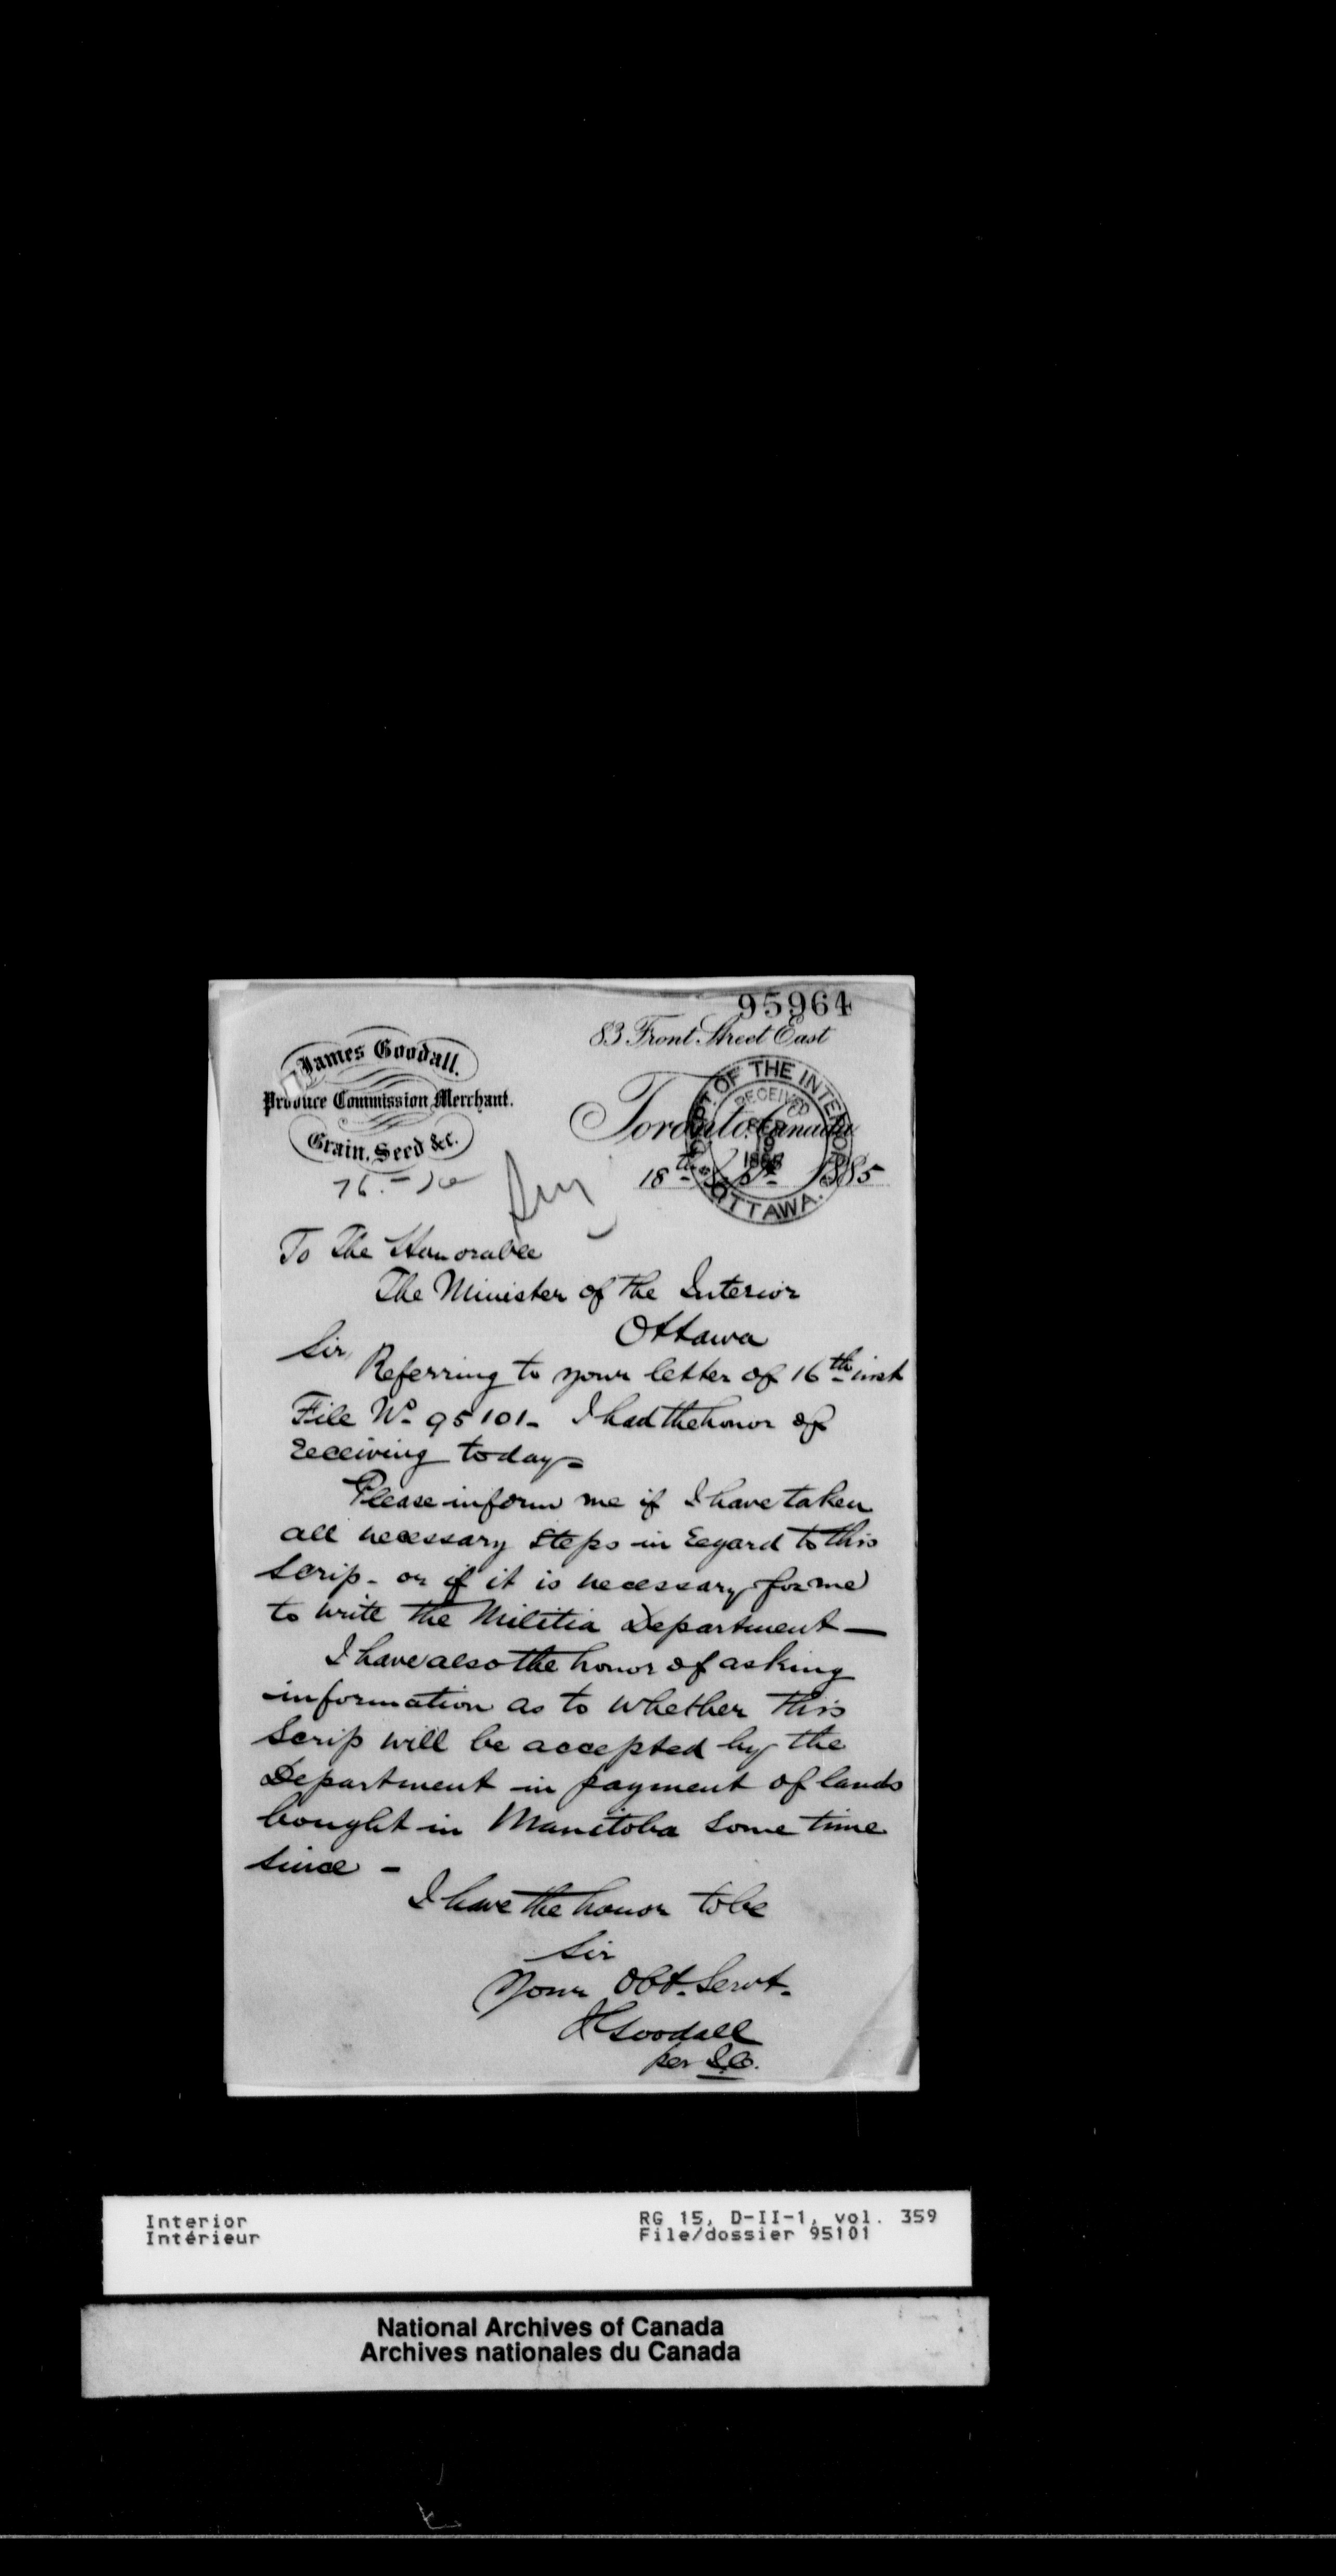 95964
83 Front Street East
James Goodall.
Produce Commission Merchant.
Grain, Seed &c.
Toronto, Canada
DEPT. OF THE INTERIOR
RECEIVED
OTTAWA.
18th Sept 1885
To The Honorable
The Minister of the Interior
Ottawa
Sir,
Referring to your letter of 16th inst
File No 95101 - I had the honor of
receiving today -
Please inform me if I have taken
all necessary steps in regard to this
scrip - or if it is necessary for me
to write the Militia Department —
I have also the honor of asking
information as to whether this
scrip will be accepted by the
Department in payment of lands
bought in Manitoba some time
since -
I have the honor to be
Sir
Your Obt. Servt.
J Goodall
per
Interior
Intérieur
RG 15, D-II-1, vol. 359
File/dossier 95101
National Archives of Canada
Archives nationales du Canada